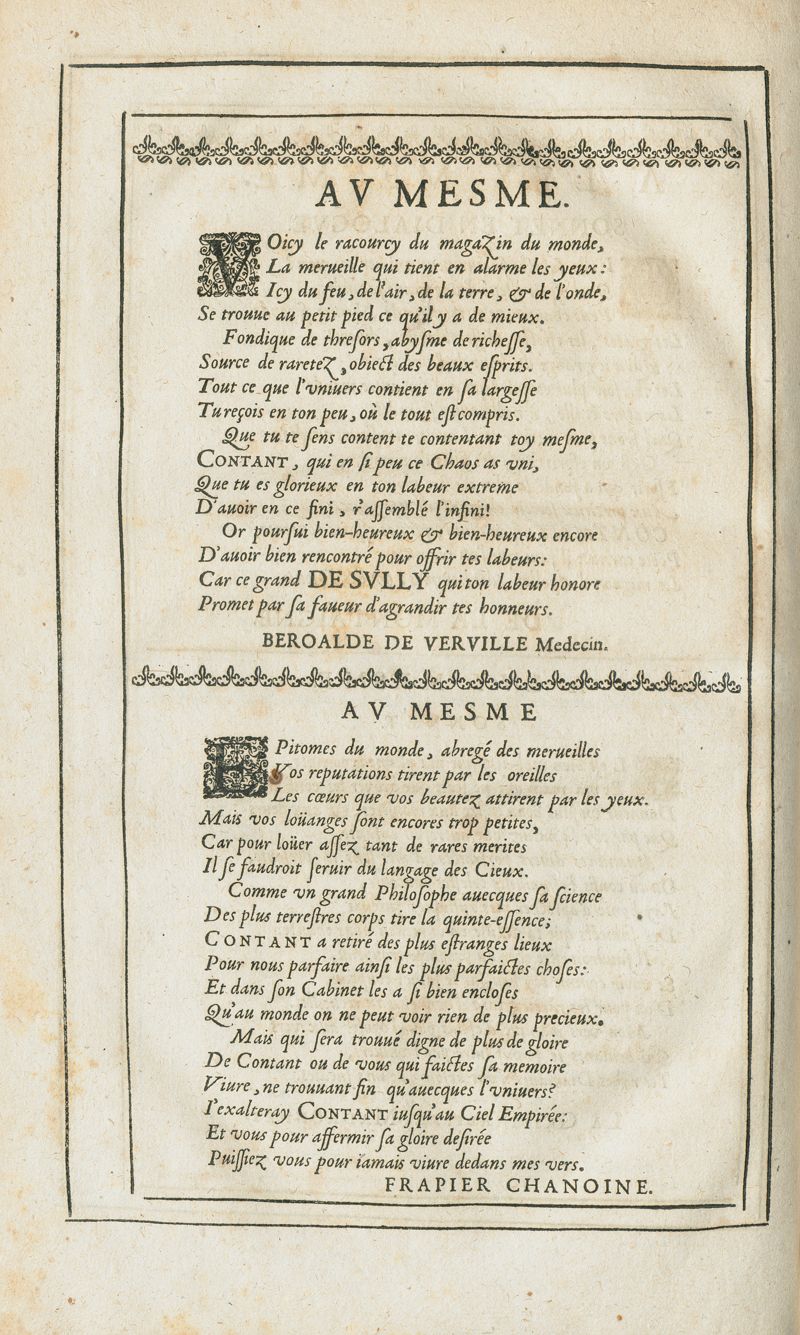 AV MESME.
VOicy le racourcy du magaZin du monde,
La merueille qui tient en alarme les yeux:
Icy du feu, de l'air, de la terre, & de l'onde,
Se trouue au petit pied ce qu'il y a de mieux.
Fondique de threſors, abyſme de richeſſe,
Source de rareteZ, obiect des beaux eſprits.
Tout ce que l'vniuers contient en ſa largeſſe
Tu reçois en ton peu, où le tout eſt compris.
Que tu te ſens content te contentant toy meſme,
CONTANT, qui en ſi peu ce Chaos as vni,
Que tu es glorieux en ton labeur extreme
D'auoir en ce fini, r'aſſemblé l'infini!
Or pourſui bien-heureux & bien-heureux encore
D'auoir bien rencontré pour offrir tes labeurs:
Car ce grand DE SVLLY qui ton labeur honore
Promet par ſa faueur d'agrandir tes honneurs.
BEROALDE DE VERVILLE Medecin.
AV MESME
EPitomes du monde, abregé des merueilles
Vos reputations tirent par les oreilles
Les cœurs que vos beautez attirent par les yeux.
Mais vos loüanges ſont encores trop petites,
Car pour loüer aſſez tant de rares merites
Il ſe faudroit ſeruir du langage des Cieux.
Comme vn grand Philoſophe auecques ſa ſcience
Des plus terreſtres corps tire la quinte-eſſence;
CONTANT a retiré des plus eſtranges lieux
Pour nous parfaire ainſi les plus parfaictes choſes:
Et dans ſon Cabinet les a ſi bien encloſes
Qu'au monde on ne peut voir rien de plus precieux.
Mais qui ſera trouué digne de plus de gloire
De Contant ou de vous qui faictes ſa memoire
Viure, ne trouuant fin qu'auecques l'vniuers?
I'exalteray CONTANT iuſqu'au Ciel Empirée:
Et vous pour affermir ſa gloire deſirée
Puiſſiez vous pour iamais viure dedans mes vers.
FRAPIER CHANOINE.